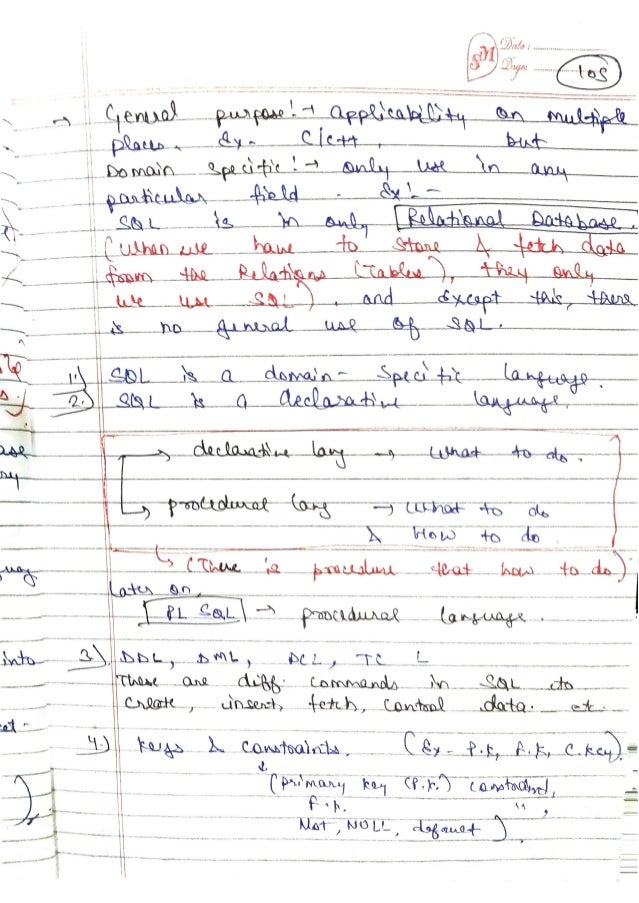 SM Date :
Page: 105
→ General purpose!→ applicability on multiple
places. Ex- C/C++, but
Domain specific!→ only use in any
particular field. Ex!-
SQL is in only Relational Database.
(When we have to store & fetch data
from the Relations (Tables), they only
we use SQL). and Except this, there
is no general use of SQL.
1.) SQL is a domain- Specific language.
2.) SQL is a declarative language.
→ declarative lang → What to do.
→ procedural lang → What to do
& How to do
↳ (There is procedure that how to do)
Later on,
PL SQL → procedural language.
3.) DDL, DML, DCL, TC L
These are diff. commands in SQL to
Create, insert, fetch, control data. et.
4.) Keys & constraints. (Ex- P.K, F.K, C.Key).
(primary key (P.K.) constraint,
F.K. ",
Not, NULL, default)
ase
ry
uag
into
et-